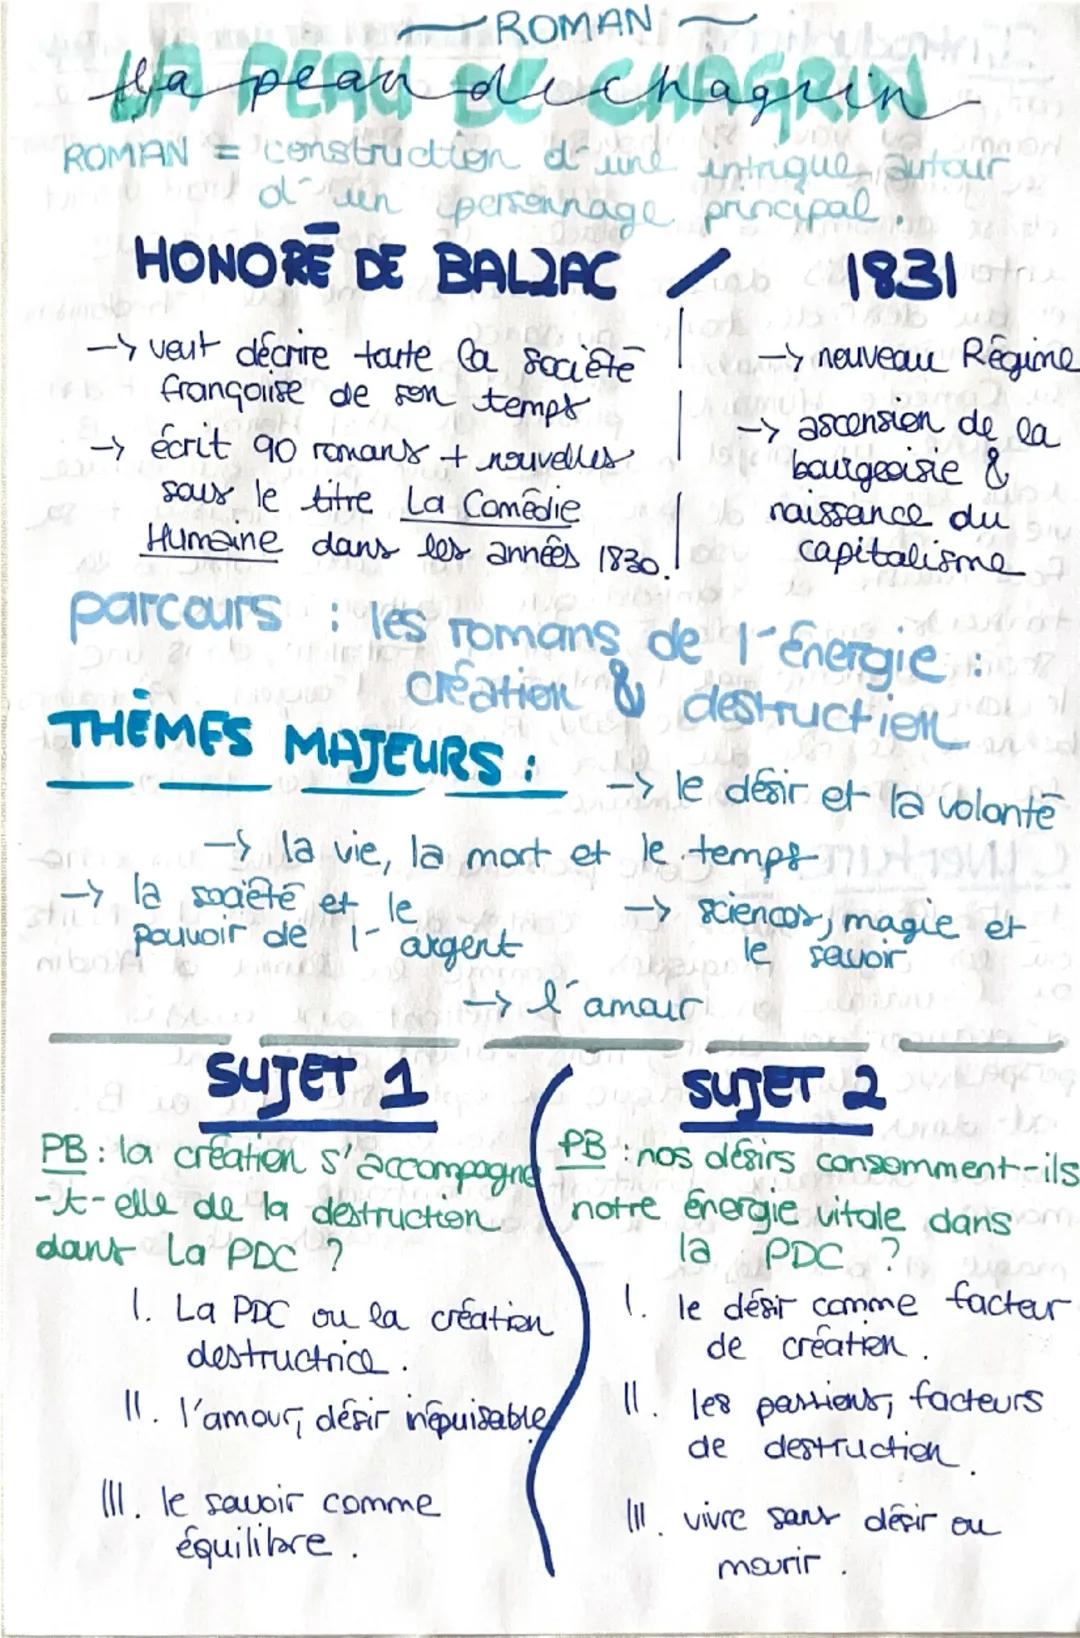 ROMAN
La peau de chagrin
LA PEAU DE CHAGRIN
ROMAN = construction d'une intrigue autour
d'un personnage principal.
HONORÉ DE BALZAC / 1831
→ veut décrire toute la société
française de son temps
→ écrit 90 romans + nouvelles
sous le titre La Comédie
Humaine dans les années 1830.
→ nouveau Régime
→ ascension de la
bourgeoisie &
naissance du
capitalisme
parcours : les romans de l'énergie :
création & destruction
THÈMES MAJEURS :
→ le désir et la volonté
→ la vie, la mort et le temps
→ la société et le
pouvoir de l'argent
→ sciences, magie et
le savoir
→ l'amour
SUJET 1
PB : la création s'accompagne
-t-elle de la destruction
dans La PDC ?
I. La PDC ou la création
destructrice.
II. l'amour, désir inépuisable
III. le savoir comme
équilibre.
SUJET 2
PB : nos désirs consomment-ils
notre énergie vitale dans
la PDC ?
I. le désir comme facteur
de création.
II. les passions, facteurs
de destruction.
III. vivre sans désir ou
mourir.